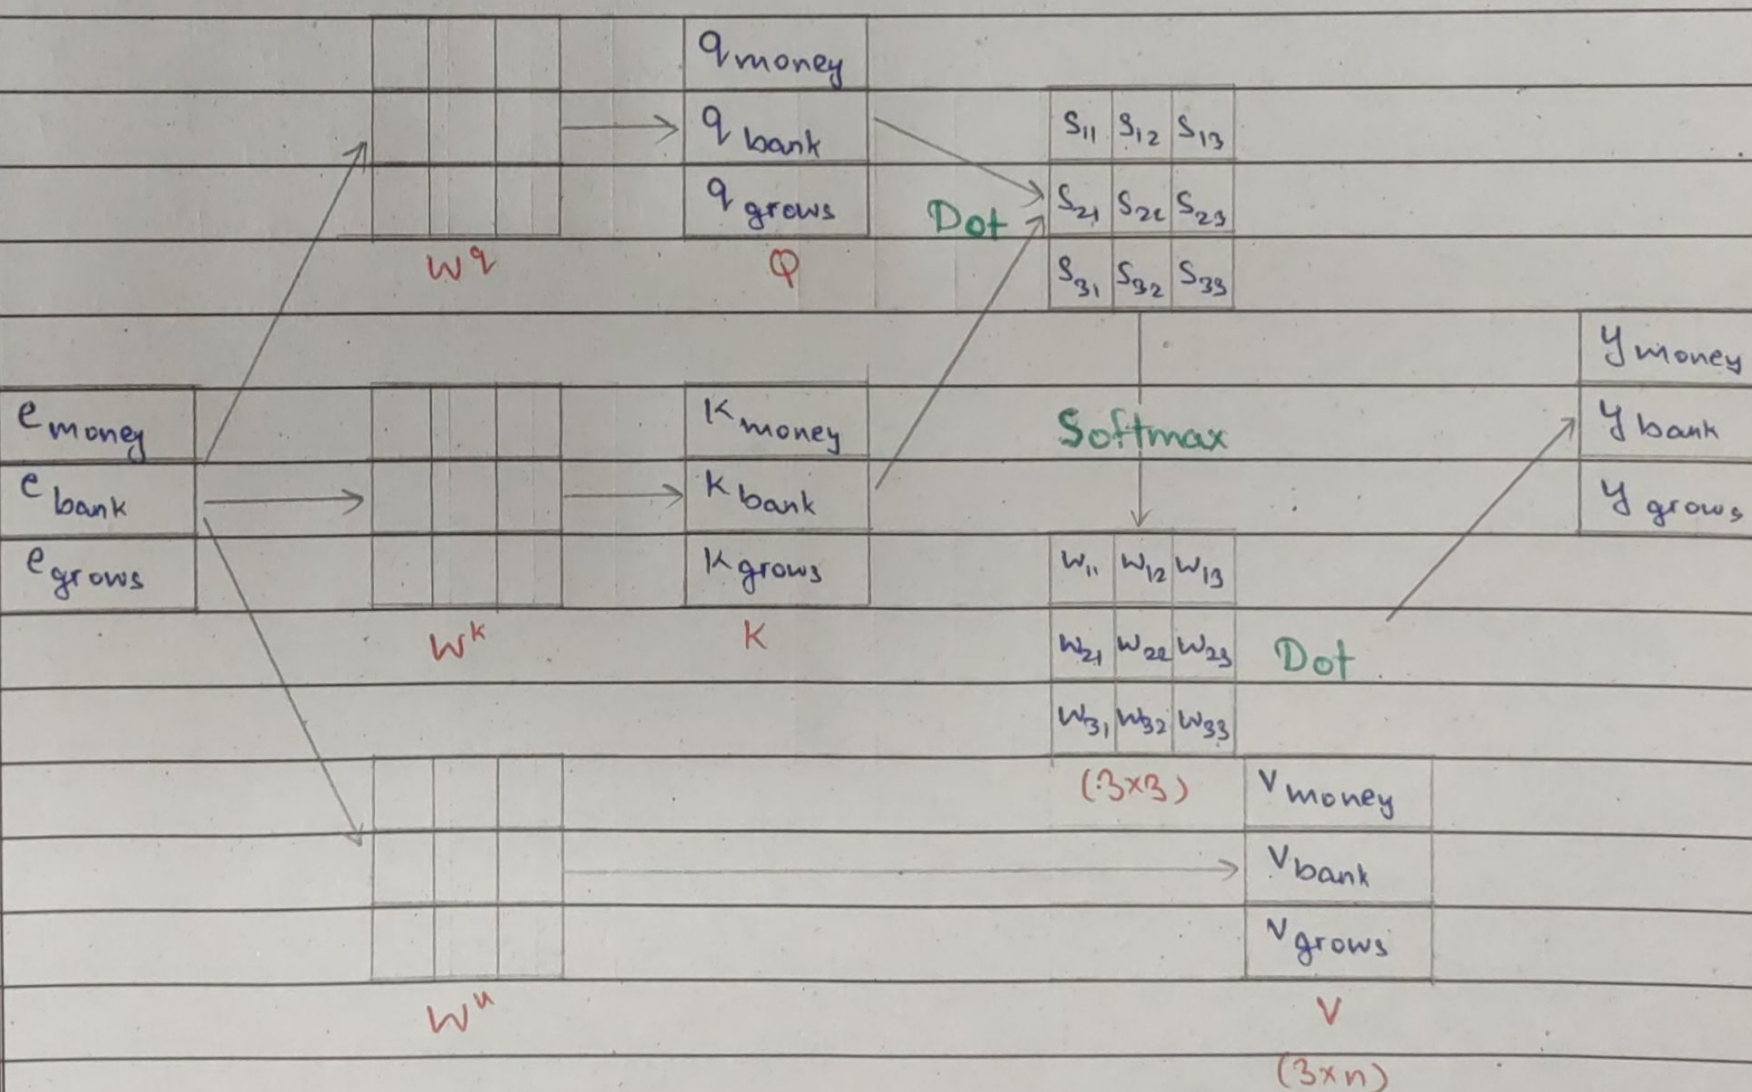 q money
q bank
q grows
W^q
Q
Dot
S11 S12 S13
S21 S22 S23
S31 S32 S33
Softmax
e money
e bank
e grows
W^k
K money
K bank
K grows
K
W11 W12 W13
W21 W22 W23
W31 W32 W33
(3x3)
Dot
y money
y bank
y grows
W^u
V money
V bank
V grows
V
(3xn)